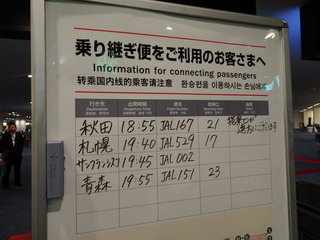 乗り継ぎ便をご利用のお客さまへ
Information for connecting passengers
转乘国内线的乘客请注意 환승편을 이용하시는 손님에게
行き先 出発時刻 便名 搭乗口
Destination Departure Time Flight Number
秋田 18:55 JAL167 21
札幌 19:40 JAL529 17
サンフランシスコ 19:45 JAL002
青森 19:55 JAL151 23